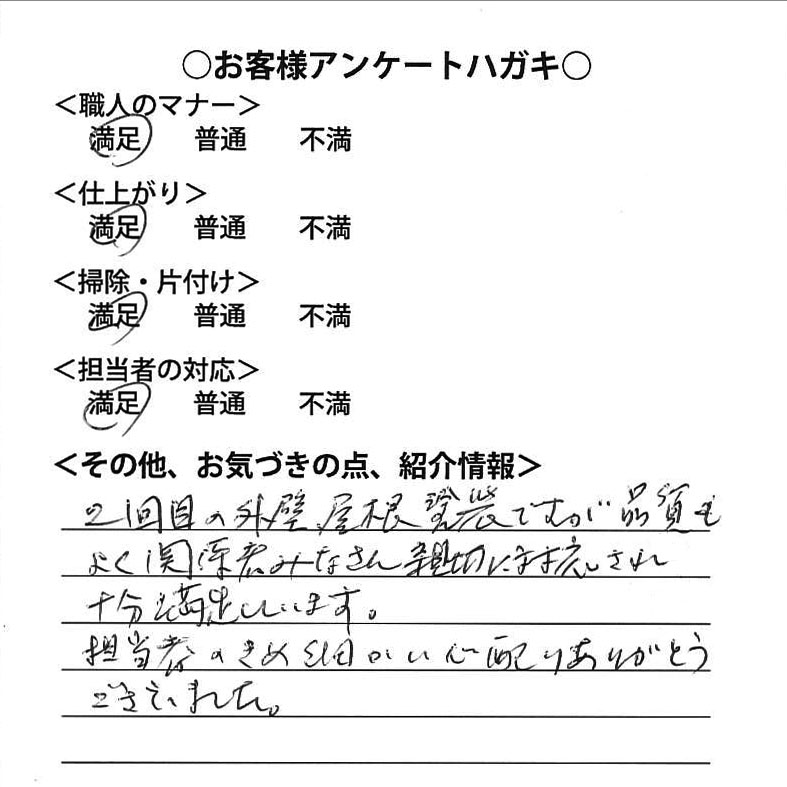 ○お客様アンケートハガキ○
＜職人のマナー＞
満足 普通 不満
＜仕上がり＞
満足 普通 不満
＜掃除・片付け＞
満足 普通 不満
＜担当者の対応＞
満足 普通 不満
＜その他、お気づきの点、紹介情報＞
2回目の外壁、屋根ですが品質も
よく関係者みなさん親切に対応され
十分満足しています。
担当者のきめ細かい心配りありがとう
ございました。